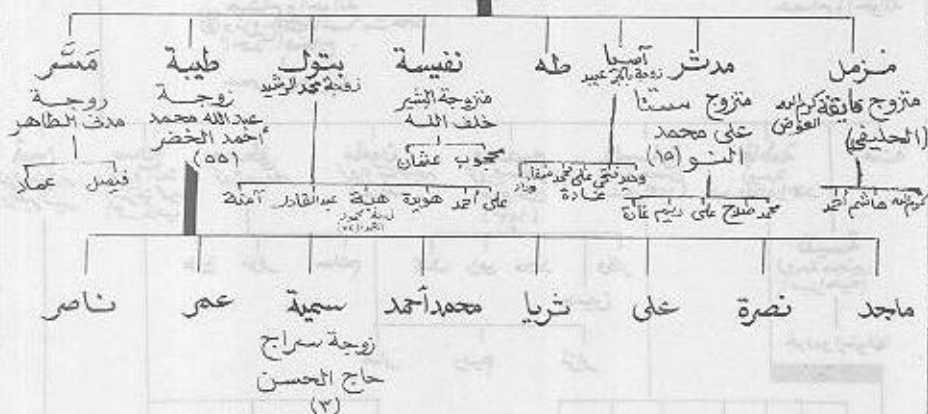 مزمل
متزوج فايقة كرم الله العوض
(الحليفي)
كرم الله هاشم أحمد
مدثر
متزوج ستنا
على محمد
النو (١٥)
محمد صلاح على ريم غادة
آسيا
زوجة بابكر عبيد
وحيد فتحى على محمد
غادة
طه
نفيسة
متزوجة البشير
خلف الله
محجوب عثمان
بتول
زوجة محمد الرشيد
على أحمد هويدة هبة عبدالقادر آمنة
طيبة
زوجة
عبدالله محمد
أحمد الخضر
(٥٥)
روجة
مدثر الطاهر
فيصل عماد
ماجد
نصرة
على
ثريا
محمد أحمد
سمية
زوجة سراج
حاج الحسن
(٣)
عمر
ناصر